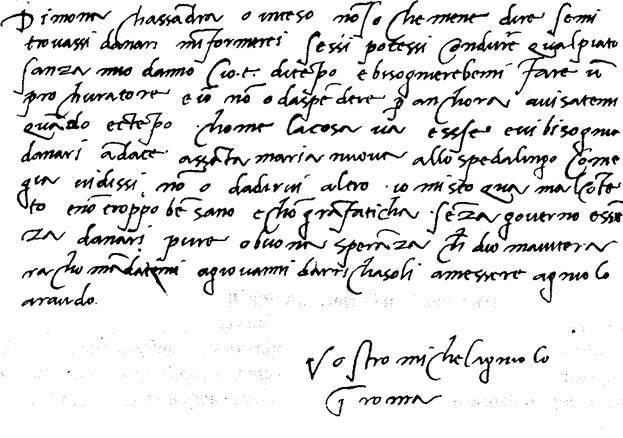 Di mona chassandra o inteso no so che mene dire se mi
trovassi danari m informerei sessi potessi condurre quel piato
sanza mio danno cioe di tepo e bisognierebemi fare u
prochuratore e io no o da spedere p anchora avisatemi
quado e ctepo chome la cosa va e sse e vi bisognia
danari adate a sata maria nuova allo spedalingo come
gia vi dissi no o da dirvi altro io mi sto qua mal cote
to e no troppo be sano e cho gra faticha seza governo e se
za danari pure o buona speraza ch dio m aiutera
rachomadatemi a giovanni da richasoli a messere agniolo
araudo
Vostro michelagniolo
i roma